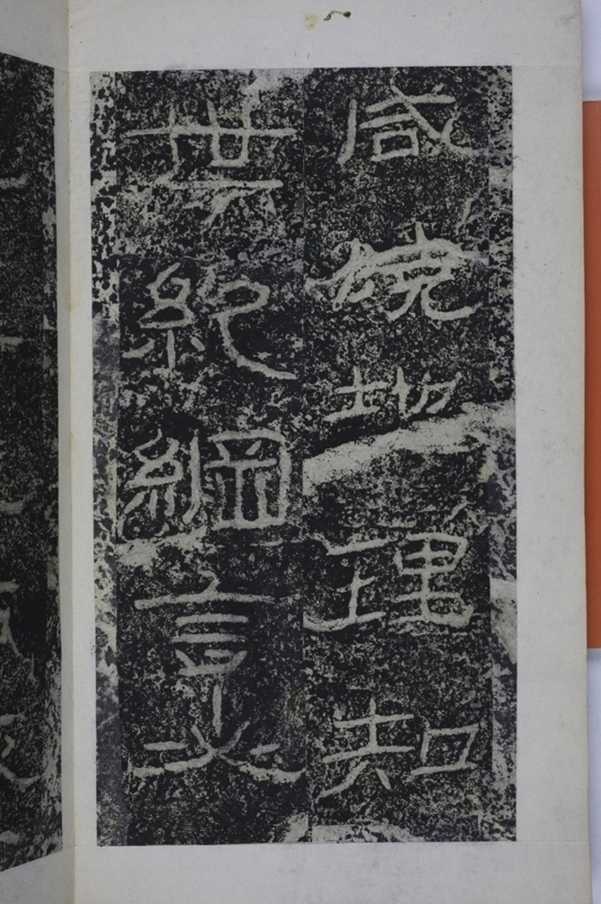 咸曉地理知
世紀綱言必